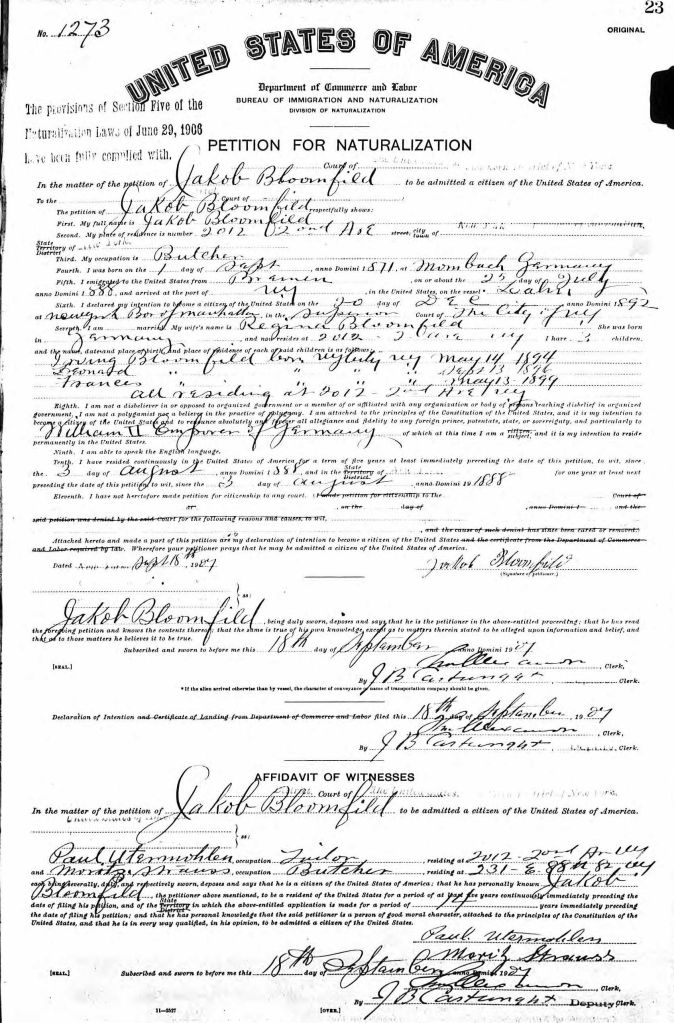 23
No. 1273
ORIGINAL
UNITED STATES OF AMERICA
Department of Commerce and Labor
BUREAU OF IMMIGRATION AND NATURALIZATION
DIVISION OF NATURALIZATION
The provisions of Section Five of the
Naturalization Laws of June 29, 1906
have been fully complied with.
PETITION FOR NATURALIZATION
Court of
In the matter of the petition of Jakob Bloomfild to be admitted a citizen of the United States of America.
To the Court of
The petition of Jakob Bloomfild respectfully shows:
First. My full name is Jakob Bloomfild
Second. My place of residence is number 2012 2nd Ave street, city town of New York
State Territory District of
Third. My occupation is Butcher
Fourth. I was born on the 1 day of Sept, anno Domini 1871, at Mombach Germany
Fifth. I emigrated to the United States from Bremen on or about the 25 day of July
anno Domini 1888, and arrived at the port of NY, in the United States, on the vessel Lahn
Sixth. I declared my intention to become a citizen of the United States on the 20 day of DEC anno Domini 1892
at New York Bor of Manhattan, in the Superior Court of The City of NY
Seventh. I am married. My wife's name is Regina Bloomfild She was born
in Germany and now resides at 2012 2 Ave NY I have 3 children,
and the name, date and place of birth, and place of residence of each of said children is as follows:
Irving Bloomfild born NY City NY May 14 1894
Leonard " " " " Sept 13 1896
Frances " " " " May 13 1899
all residing at 2012 2nd Ave NY
Eighth. I am not a disbeliever in or opposed to organized government or a member of or affiliated with any organization or body of persons teaching disbelief in organized
government. I am not a polygamist nor a believer in the practice of polygamy. I am attached to the principles of the Constitution of the United States, and it is my intention to
become a citizen of the United States and to renounce absolutely and forever all allegiance and fidelity to any foreign prince, potentate, state, or sovereignty, and particularly to
William II Emperor of Germany of which at this time I am a citizen subject, and it is my intention to reside
permanently in the United States.
Ninth. I am able to speak the English language.
Tenth. I have resided continuously in the United States for a term of five years at least immediately preceding the date of this petition, to wit, since
the 3 day of August, anno Domini 1888, and in the State Territory District of for one year at least next
preceding the date of this petition, to wit, since the 3 day of August, anno Domini 19 1888
Eleventh. I have not heretofore made petition for citizenship to any court. (I made petition for citizenship to the Court of
at, on the day of, anno Domini 1, and the
said petition was denied by the said Court for the following reasons and causes, to wit,
and the cause of such denial has since been cured or removed.)
Attached hereto and made a part of this petition are my declaration of intention to become a citizen of the United States and the certificate from the Department of Commerce
and Labor required by law. Wherefore your petitioner prays that he may be admitted a citizen of the United States of America.
Dated Sept 18th, 1907
Jakob Bloomfild
(Signature of petitioner.)
ss:
Jakob Bloomfild, being duly sworn, deposes and says that he is the petitioner in the above-entitled proceeding; that he has read
the foregoing petition and knows the contents thereof; that the same is true of his own knowledge, except as to matters therein stated to be alleged upon information and belief, and
that as to those matters he believes it to be true.
Subscribed and sworn to before me this 18th day of September, anno Domini 1907
[SEAL.]
Clerk.
By J B Cartwright, Clerk.
* If the alien arrived otherwise than by vessel, the character of conveyance or name of transportation company should be given.
Declaration of Intention and Certificate of Landing from Department of Commerce and Labor filed this 18th day of September, 1907
Clerk.
By J B Cartwright Deputy Clerk.
AFFIDAVIT OF WITNESSES
Court of
In the matter of the petition of Jakob Bloomfild to be admitted a citizen of the United States of America.
ss:
Paul Utermohlen, occupation Tailor, residing at 2012 2nd Av NY
and Moritz Strauss, occupation Butcher, residing at 231 E 88th St NY
each being severally, duly, and respectively sworn, deposes and says that he is a citizen of the United States of America; that he has personally known Jakob
Bloomfild, the petitioner above mentioned, to be a resident of the United States for a period of at least five years continuously immediately preceding the
date of filing his petition, and of the State Territory District in which the above-entitled application is made for a period of years immediately preceding
the date of filing his petition; and that he has personal knowledge that the said petitioner is a person of good moral character, attached to the principles of the Constitution of the
United States, and that he is in every way qualified, in his opinion, to be admitted a citizen of the United States.
Paul Utermohlen
Moritz Strauss
Subscribed and sworn to before me this 18th day of September, anno Domini 1907
[SEAL.]
Clerk.
By J B Cartwright Deputy Clerk.
11—3527
[OVER.]